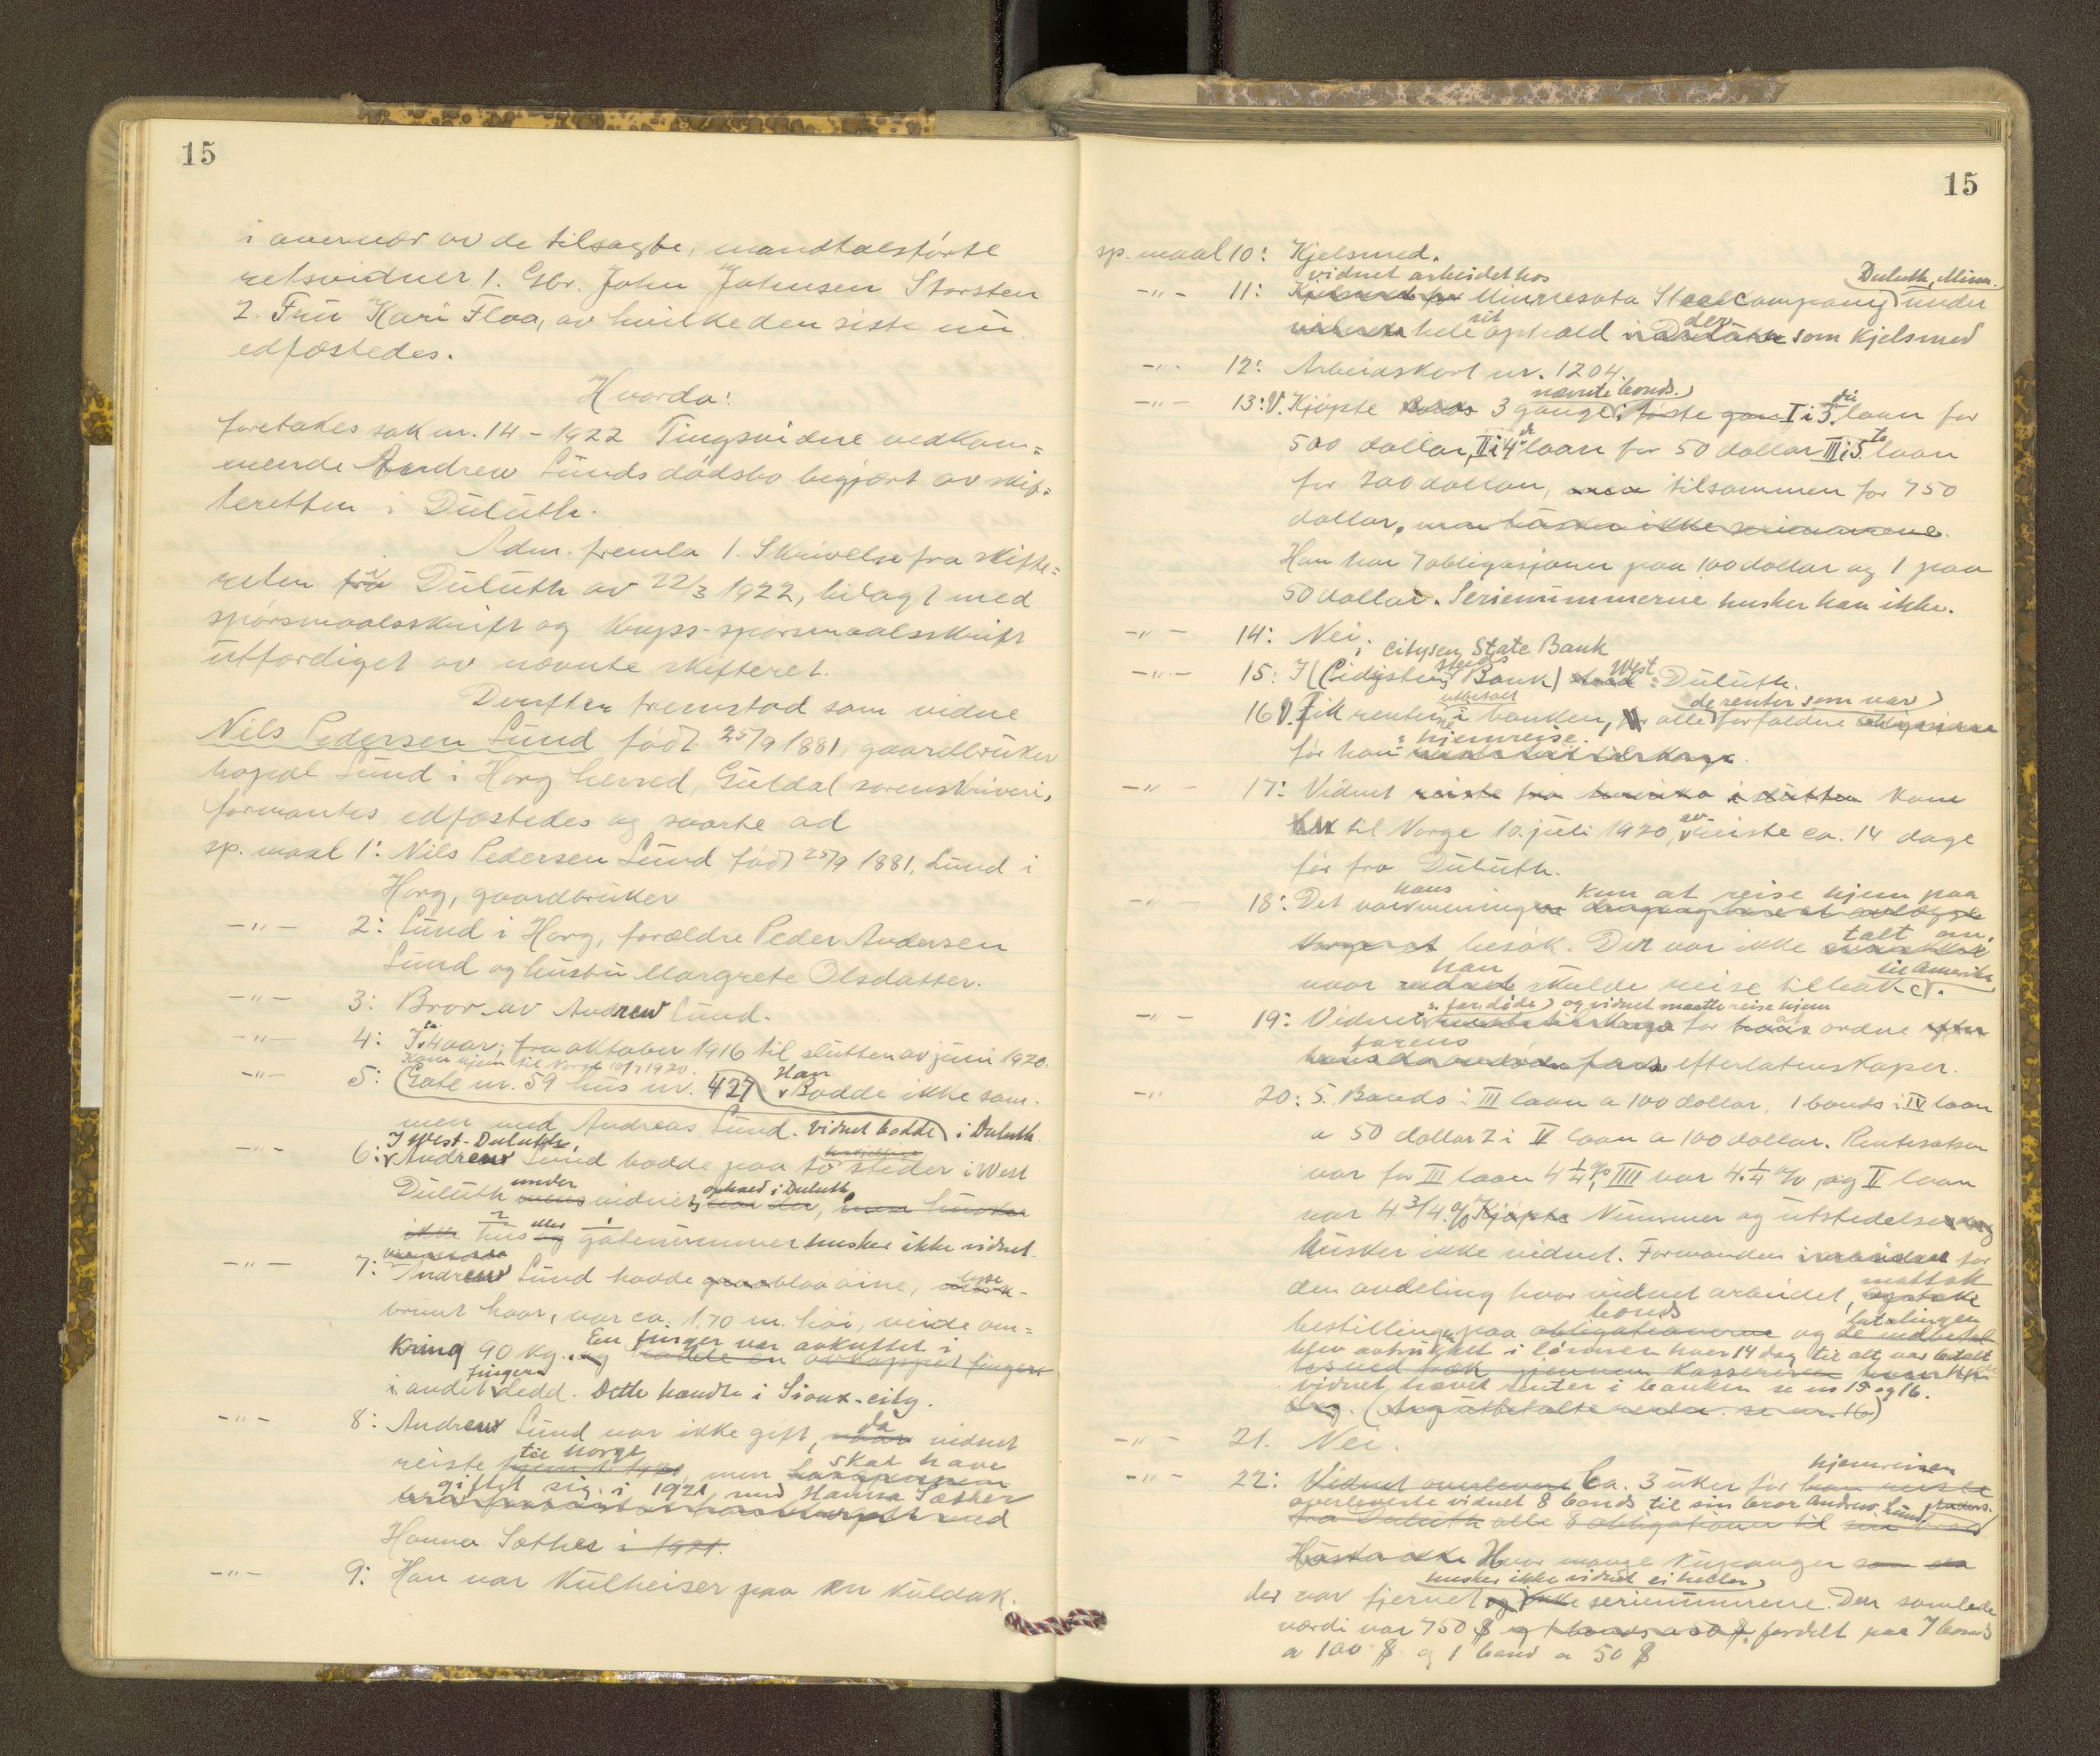 15
i overvær av de tilsagte, mandtalsførte
retsvidner 1. Gbr. John Johnsen Storsten
2. Fru Kari Floa, av hvilke den siste nu
edfæstedes.
Hvorda:
foretokes sak nr. 14 - 1922 Tingsvidne vedkom=
mende Andrew Lunds dødsbo begjært av skif=
teretten i Duluth.
Adm. fremla 1. Skrivelse fra skifte=
retten i Duluth av 22/3 1922, bilagt med
spørsmaalsskrift og kryss-spørsmaalsskrift
utfærdiget av nævnte skifteret.
Derefter fremstod som vidne
Nils Pedersen Lund født 25/9 1881, gaardbruker
bopæl Lund i Horg herred, Guldal sorenskriveri,
formantes, edfæstedes og svarte ad
sp. maal 1: Nils Pedersen Lund født 25/9 1881, Lund i
Horg, gaardbruker
-"- 2: Lund i Horg, forældre Peder Andersen
Lund og hustru Margrete Olsdatter.
-"- 3: Bror av Andrew Lund.
-"- 4: I ca 4 aar, fra oktober 1916 til slutten av juni 1920.
Kom hjem til Norge 10/7 1920.
-"- 5: (Gate nr. 59 hus nr. 427) Han Bodde ikke sam-
men med Andreas Lund. Vidnet bodde i Duluth.
I West-Duluth.
-"- 6: Andrew Lund bodde paa to forskjellige steder i West
Duluth under vidnets ophold i Duluth,
hus eller gatenummer husker ikke vidnet.
-"- 7: Andrew Lund hadde blaa øine, lyse-
brunt haar, var ca. 1,70 m. høi, veide om=
kring 90 kg. En finger var avkuttet i
andet fingerledd. Dette hændte i Sioux-city.
-"- 8: Andrew Lund var ikke gift, da vidnet
reiste til Norge, men skal have
giftet sig i 1921 med Hanna Sæther
Hanna Sæther i 1921.
-"- 9: Han var kulheiser paa en kuldok.
15
sp. maal 10: Kjelsmed.
-"- 11: vidnet arbeidet hos Minnesota Steelcompany Duluth, Minn. under
hele sit ophold der som Kjelsmed
-"- 12: Arbeidskort nr. 1204.
-"- 13: V. Kjøpte 3 gange nævnte bonds: I i 3die laan for
500 dollar, II i 4de laan for 50 dollar III i 5te laan
for 200 dollar, tilsammen for 750
dollar, men husker ikke serienummerne.
Han har 7 obligasjoner paa 100 dollar og 1 paa
50 dollar. Serienummerne husker han ikke.
-"- 14: Nei.
-"- 15: I Citysen State Bank West-Duluth.
16 V. Fik renten utbetalt i banken, alle de renter som var forfaldne
før hans hjemreise.
-"- 17: Vidnet kom
til Norge 10. juli 1920, avreiste ca. 14 dage
før fra Duluth.
-"- 18: Det var hans mening kun at reise hjem paa
besøk. Det var ikke talt om,
naar han skulde reise tilbake til Amerika.
-"- 19: Vidnets far døde og vidnet maatte reise hjem for at ordne
farens efterlatenskaper.
-"- 20: 5. Bonds i III laan a 100 dollar, 1 bonds i IV laan
a 50 dollar 2 i V laan a 100 dollar. Rentesatsen
var for III laan 4 1/4 %, IIII var 4 1/4 %, og V laan
var 4 3/4 %. Nummer og utstedelse
husker ikke vidnet. Formanden for
den avdeling hvor vidnet arbeidet, mottok
bestillingen paa bonds og betalingen
blev avtrukket i lønnen hver 14 dag til alt var betalt
vidnet hævet renter i banken se nr 15 og 16.
-"- 21. Nei.
-"- 22: Ca. 3 uker før hjemreisen
overleverte vidnet 8 bonds til sin bror Andrew Lund.
Hvor mange kuponger
der var fjernet husker ikke vidnet ei heller serienummrene. Den samlede
værdi var 750 $ fordelt paa 7 bonds
a 100 $ og 1 bond a 50 $